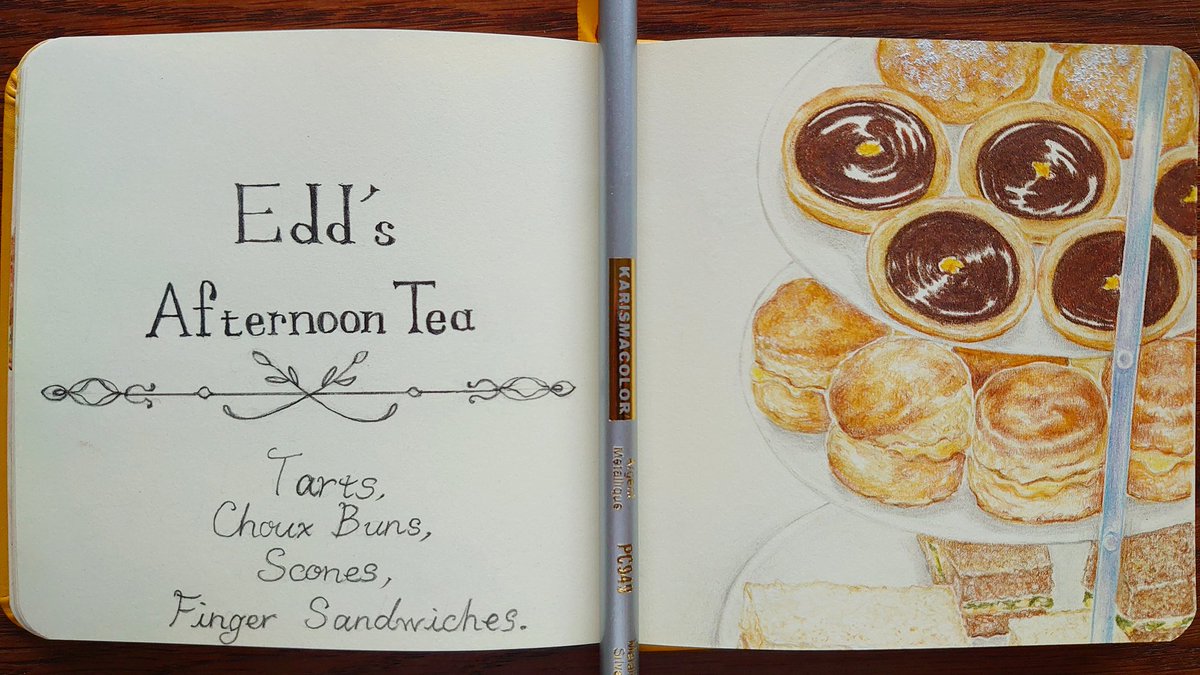 Edd's
Afternoon Tea
Tarts,
Choux Buns,
Scones,
Finger Sandwiches.
KARISMACOLOR
Argent
Métallique
PC949